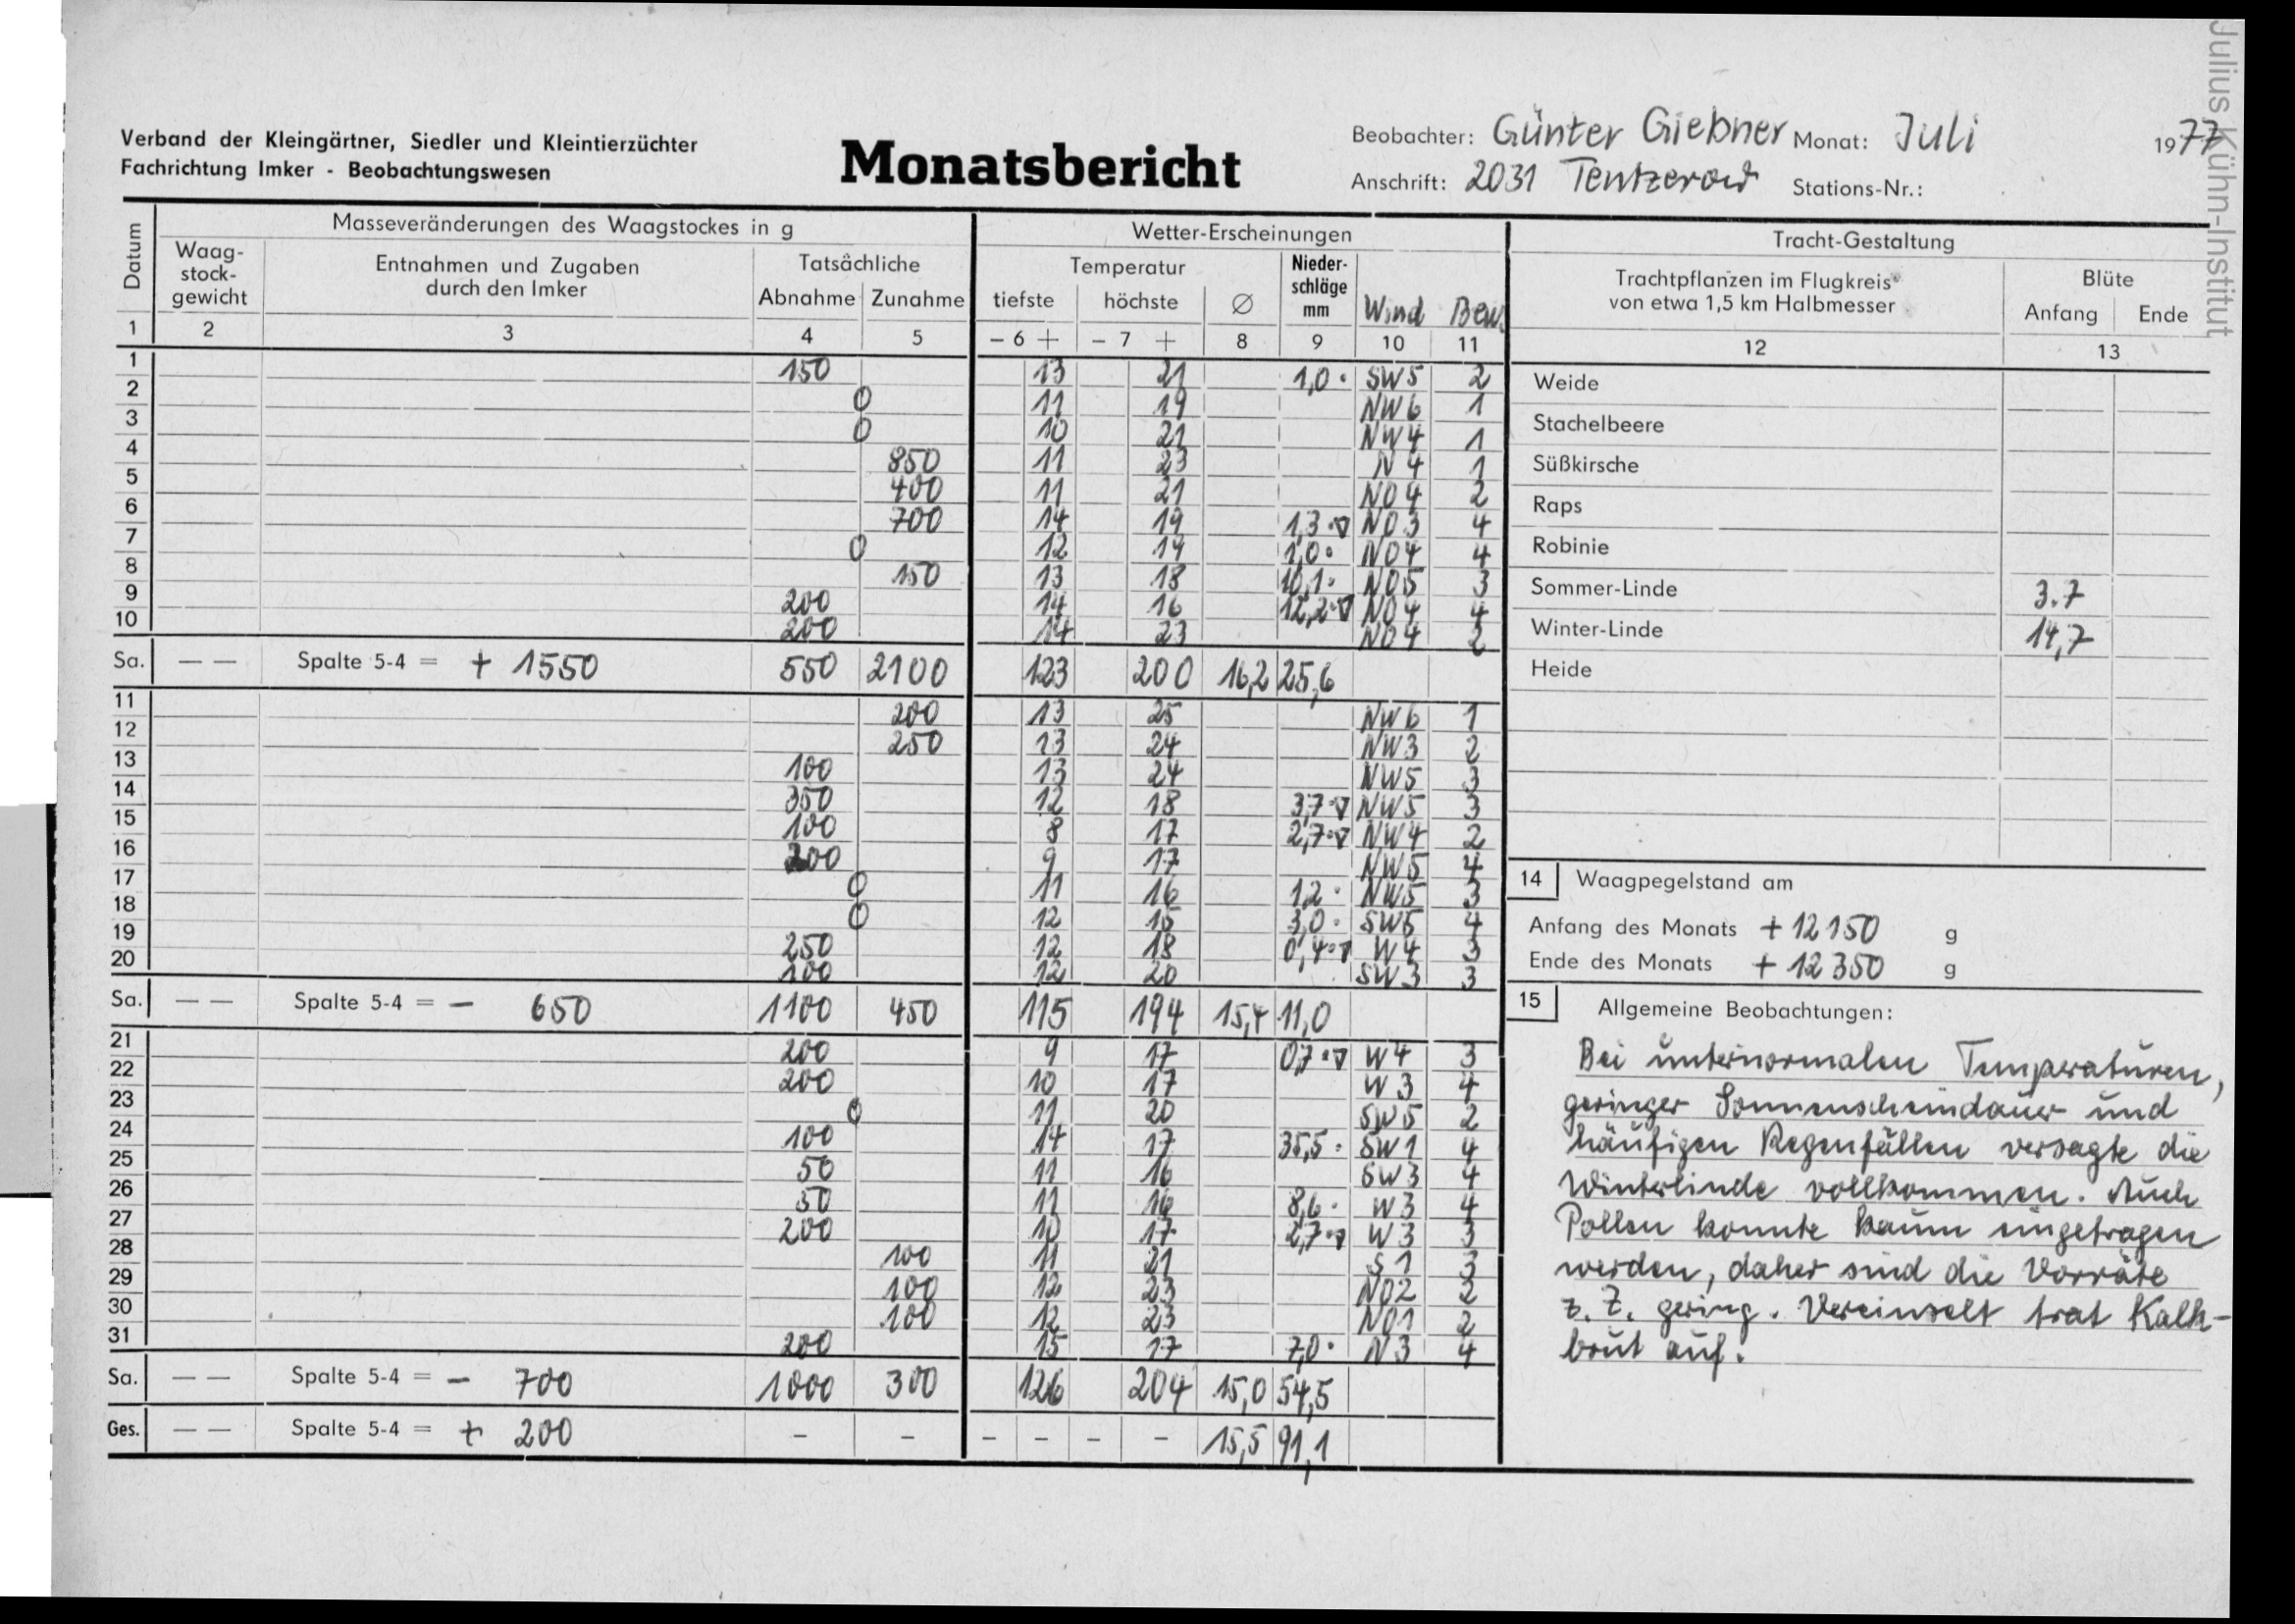 Verband der Kleingärtner, Siedler und Kleintierzüchter
Fachrichtung Imker - Beobachtungswesen
Monatsbericht
Beobachter: Günter Giebner Monat: Juli 1977
Anschrift: 2031 Stations-Nr.:
Datum
Masseveränderungen des Waagstockes in g
Waag-stock-gewicht
Entnahmen und Zugaben durch den Imker
Tatsächliche
Abnahme Zunahme
Wetter-Erscheinungen
Temperatur
tiefste höchste ∅
Nieder-schläge mm
Wind Bew.
1 2 3 4 5 - 6 + - 7 + 8 9 10 11
1 150 13 21 1,0 • SW 5 2
2 0 11 19 NW 6 1
3 0 10 21 NW 4 1
4 850 11 23 N 4 1
5 400 11 21 NO 4 2
6 700 14 19 1,3 •▽ NO 3 4
7 0 12 14 1,0 • NO 4 4
8 150 13 18 10,1 • NO 5 3
9 200 14 16 12,2 •▽ NO 4 4
10 200 14 23 NO 4 2
Sa. — — Spalte 5-4 = + 1550 550 2100 123 200 16,2 25,6
11 200 13 25 NW 6 1
12 250 13 24 NW 3 2
13 100 13 24 NW 5 3
14 350 12 18 3,7 •▽ NW 5 3
15 100 8 17 2,7 •▽ NW 4 2
16 200 9 17 NW 5 4
17 0 11 16 1,2 • NW 5 3
18 0 12 15 3,0 • SW 5 4
19 250 12 18 0,4 •▽ W 4 3
20 100 12 20 SW 3 3
Sa. — — Spalte 5-4 = - 650 1100 450 115 194 15,4 11,0
21 200 9 17 0,7 •▽ W 4 3
22 200 10 17 W 3 4
23 0 11 20 SW 5 2
24 100 14 17 35,5 • SW 1 4
25 50 11 16 SW 3 4
26 50 11 16 8,6 • W 3 4
27 200 10 17 2,7 •▽ W 3 3
28 100 11 21 S 1 3
29 100 12 23 NO 2 2
30 100 12 23 NO 1 2
31 200 15 17 7,0 • N 3 4
Sa. — — Spalte 5-4 = - 700 1000 300 126 204 15,0 54,5
Ges. — — Spalte 5-4 = + 200 - - - - - - 15,5 91,1
Tracht-Gestaltung
Trachtpflanzen im Flugkreis
von etwa 1,5 km Halbmesser
Blüte
Anfang Ende
12 13
Weide
Stachelbeere
Süßkirsche
Raps
Robinie
Sommer-Linde 3.7
Winter-Linde 14,7
Heide
14 Waagpegelstand am
Anfang des Monats + 12 150 g
Ende des Monats + 12 350 g
15 Allgemeine Beobachtungen:
Bei unternormalen Temperaturen,
geringer Sonnenscheindauer und
häufigen Regenfällen versagte die
Winterlinde vollkommen. Auch
Pollen konnte kaum eingetragen
werden, daher sind die Vorräte
z. Z. gering. Vereinzelt trat Kalk-
brut auf.
Julius Kühn-Institut